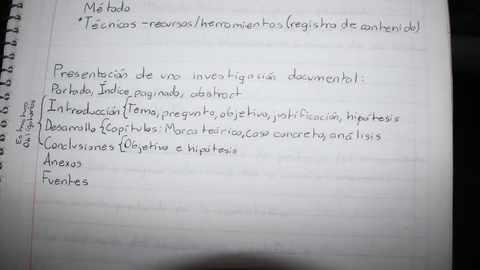 Método
*Técnicas - recursos/herramientas (registro de contenido)
Presentación de una investigación documental:
Portada, Índice paginado, abstract
Introducción {Tema, pregunta, objetivo, justificación, hipótesis
Desarrollo {Capítulos: Marco teórico, caso concreto, análisis
Conclusiones {Objetivo e hipótesis
Anexos
Fuentes
Estructura
Obligatoria